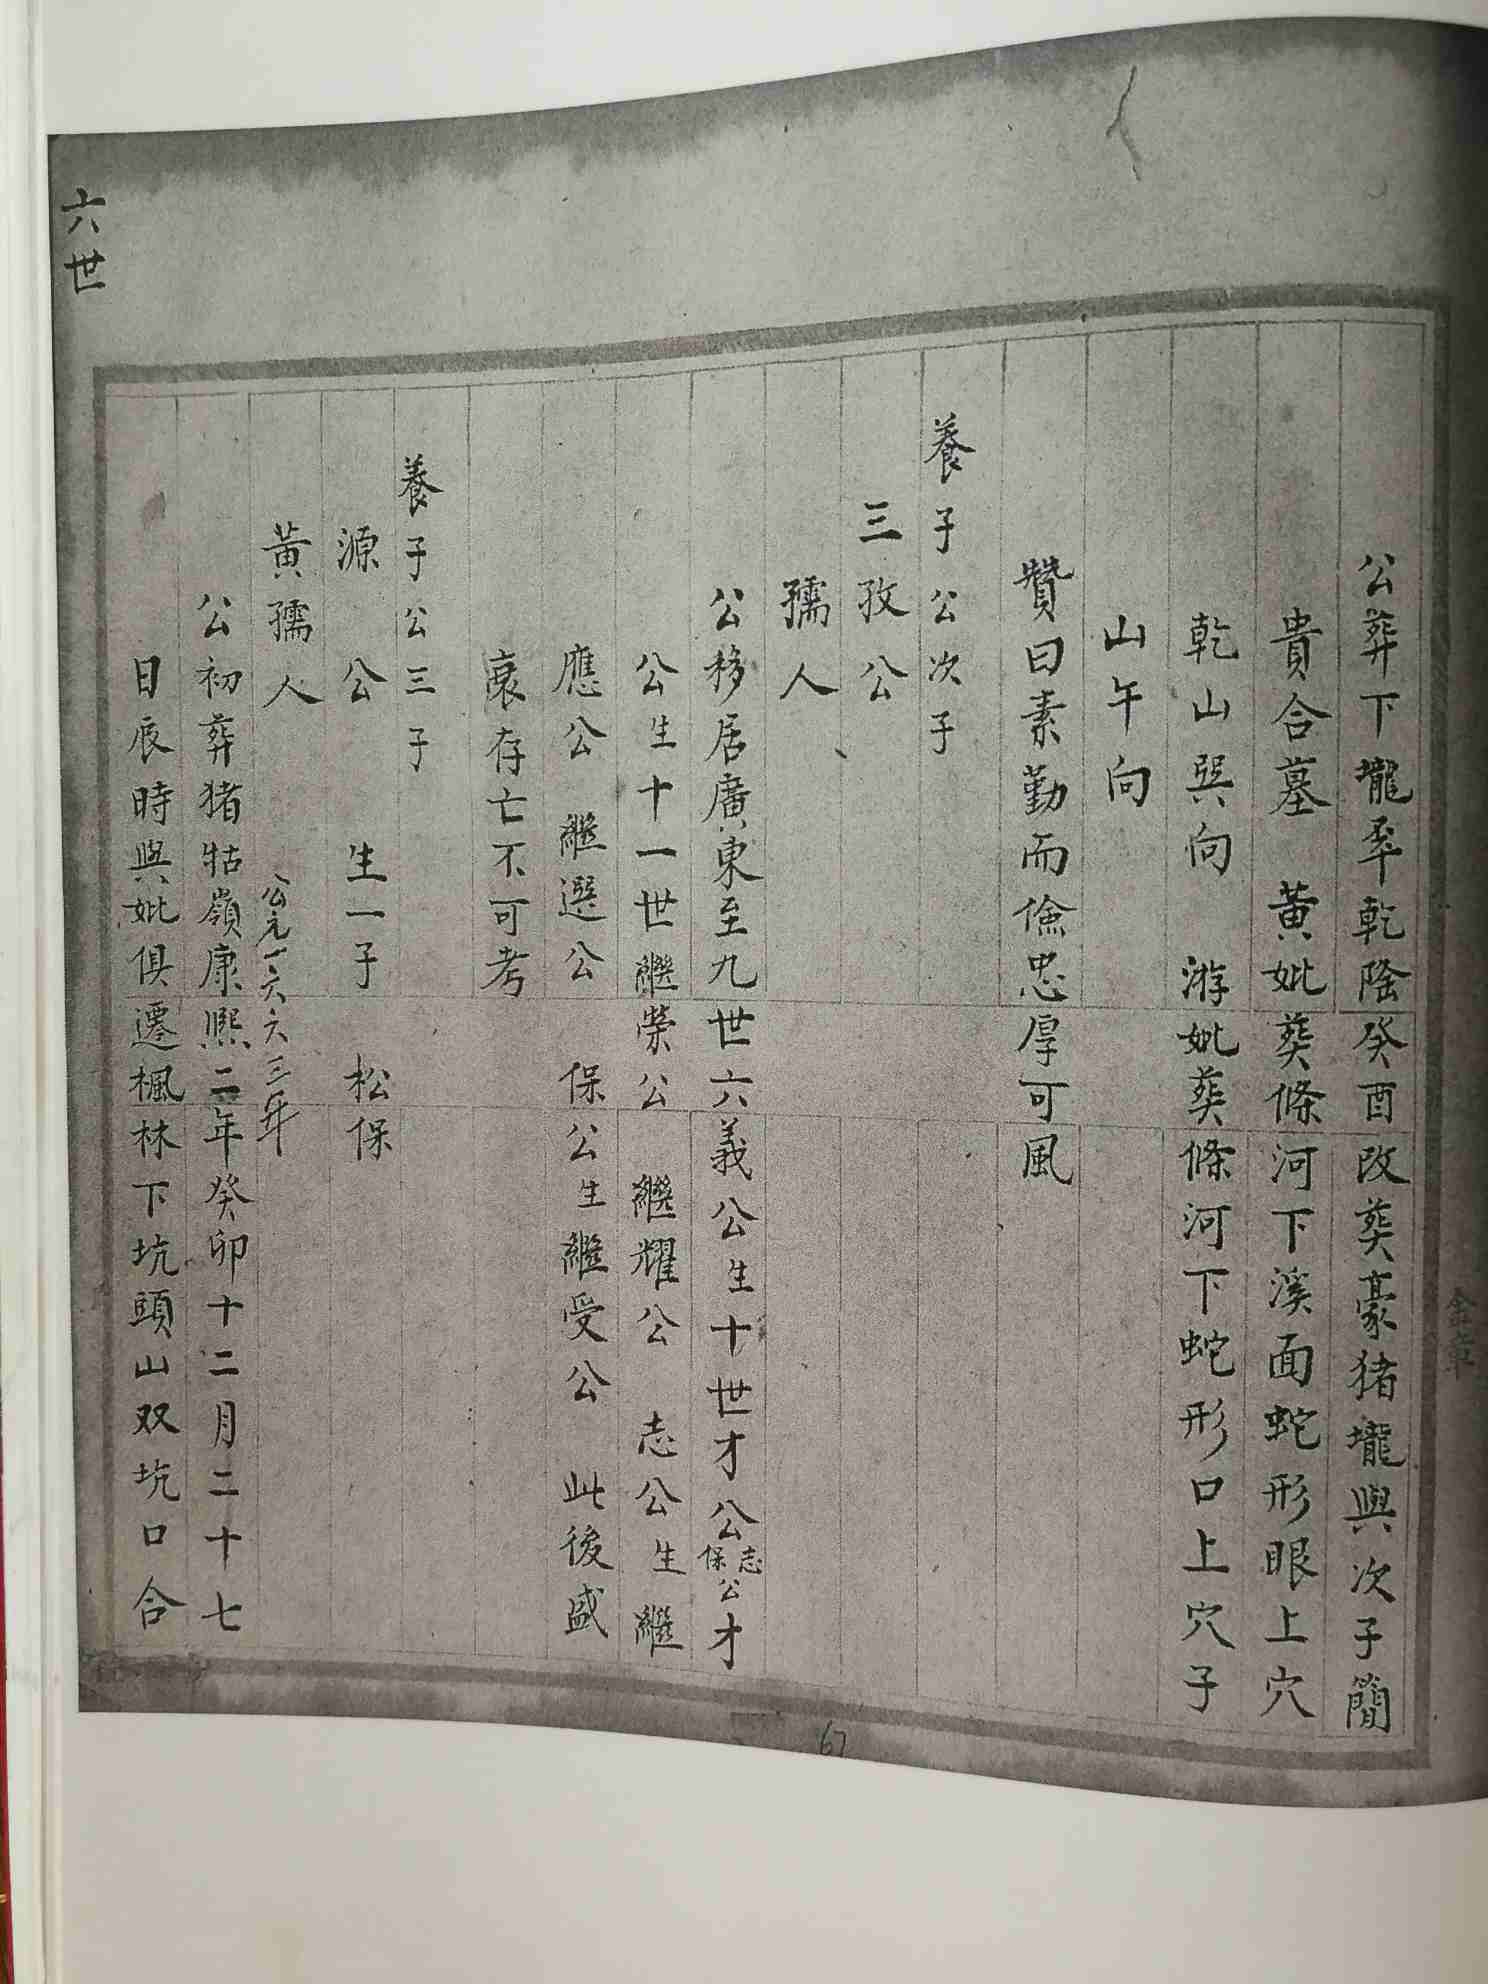 公葬下壠平乾隆癸酉改葬豪猪壠與次子簡
貴合墓　黃妣葬條河下溪面蛇形眼上穴
乾山巽向　游妣葬條河下蛇形口上穴子
山午向
贊曰素勤而儉忠厚可風
養子公次子
三孜公
孺人
公移居廣東至九世六義公生十世才公志保公才
公生十一世繼榮公　繼耀公　志公生繼
應公　繼選公　保公生繼受公　此後盛
衰存亡不可考
養子公三子
源公　生一子　松保
黃孺人
公元一六六三年
公初葬猪牯嶺康熙二年癸卯十二月二十七
日辰時與妣俱遷楓林下坑頭山双坑口合
六世
67